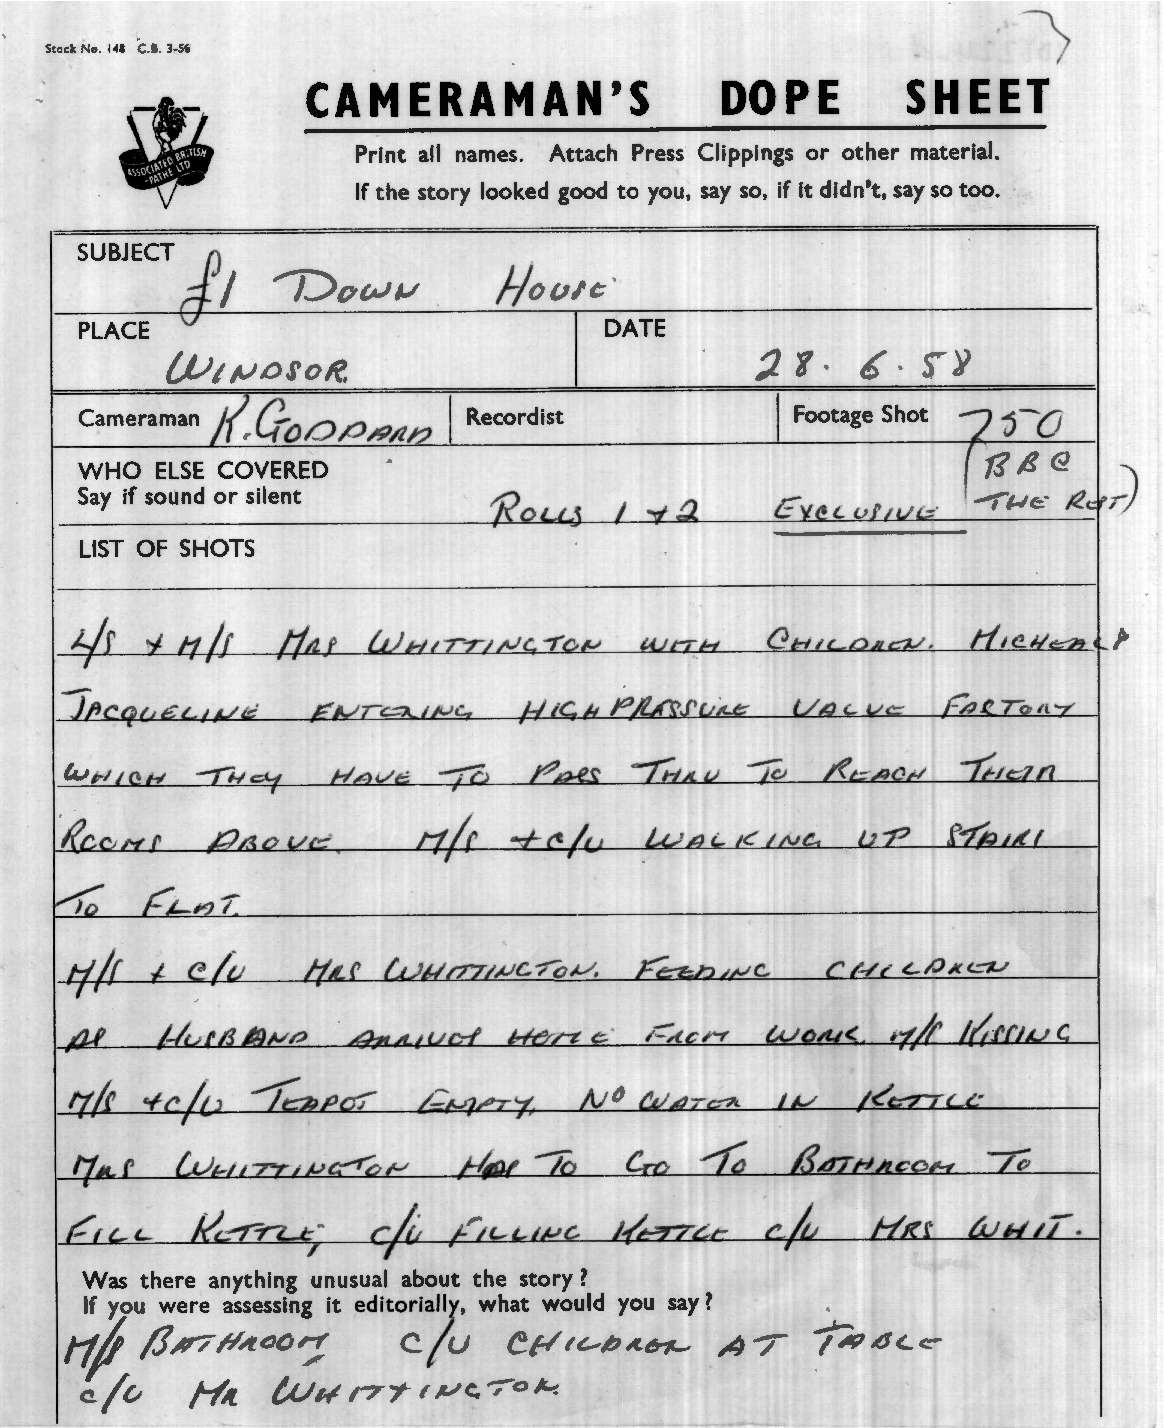 Stock No. 148 C.B. 3-56
CAMERAMAN'S DOPE SHEET
ASSOCIATED BRITISH
-PATHE LTD
Print all names. Attach Press Clippings or other material.
If the story looked good to you, say so, if it didn't, say so too.
SUBJECT
£1 DOWN HOUSE
PLACE
WINDSOR.
DATE
28. 6. 58
Cameraman K. GODDARD
Recordist
Footage Shot 750
WHO ELSE COVERED
Say if sound or silent
ROLLS 1 + 2 EXCLUSIVE
(BBC
THE REST)
LIST OF SHOTS
L/S + M/S MRS WHITTINGTON WITH CHILDREN. MICHEAL &
JACQUELINE ENTERING HIGH PRESSURE VALVE FACTORY
WHICH THEY HAVE TO PASS THRU TO REACH THEIR
ROOMS ABOVE. M/S + C/U WALKING UP STAIRS
TO FLAT.
M/S + C/U MRS WHITTINGTON. FEEDING CHILDREN
AS HUSBAND ARRIVES HOME FROM WORK. M/S KISSING
M/S + C/U TEAPOT EMPTY, NO WATER IN KETTLE
MRS WHITTINGTON HAS TO GO TO BATHROOM TO
FILL KETTLE, C/U FILLING KETTLE C/U MRS WHIT.
Was there anything unusual about the story?
If you were assessing it editorially, what would you say?
M/S BATHROOM C/U CHILDREN AT TABLE
C/U MR WHITTINGTON.